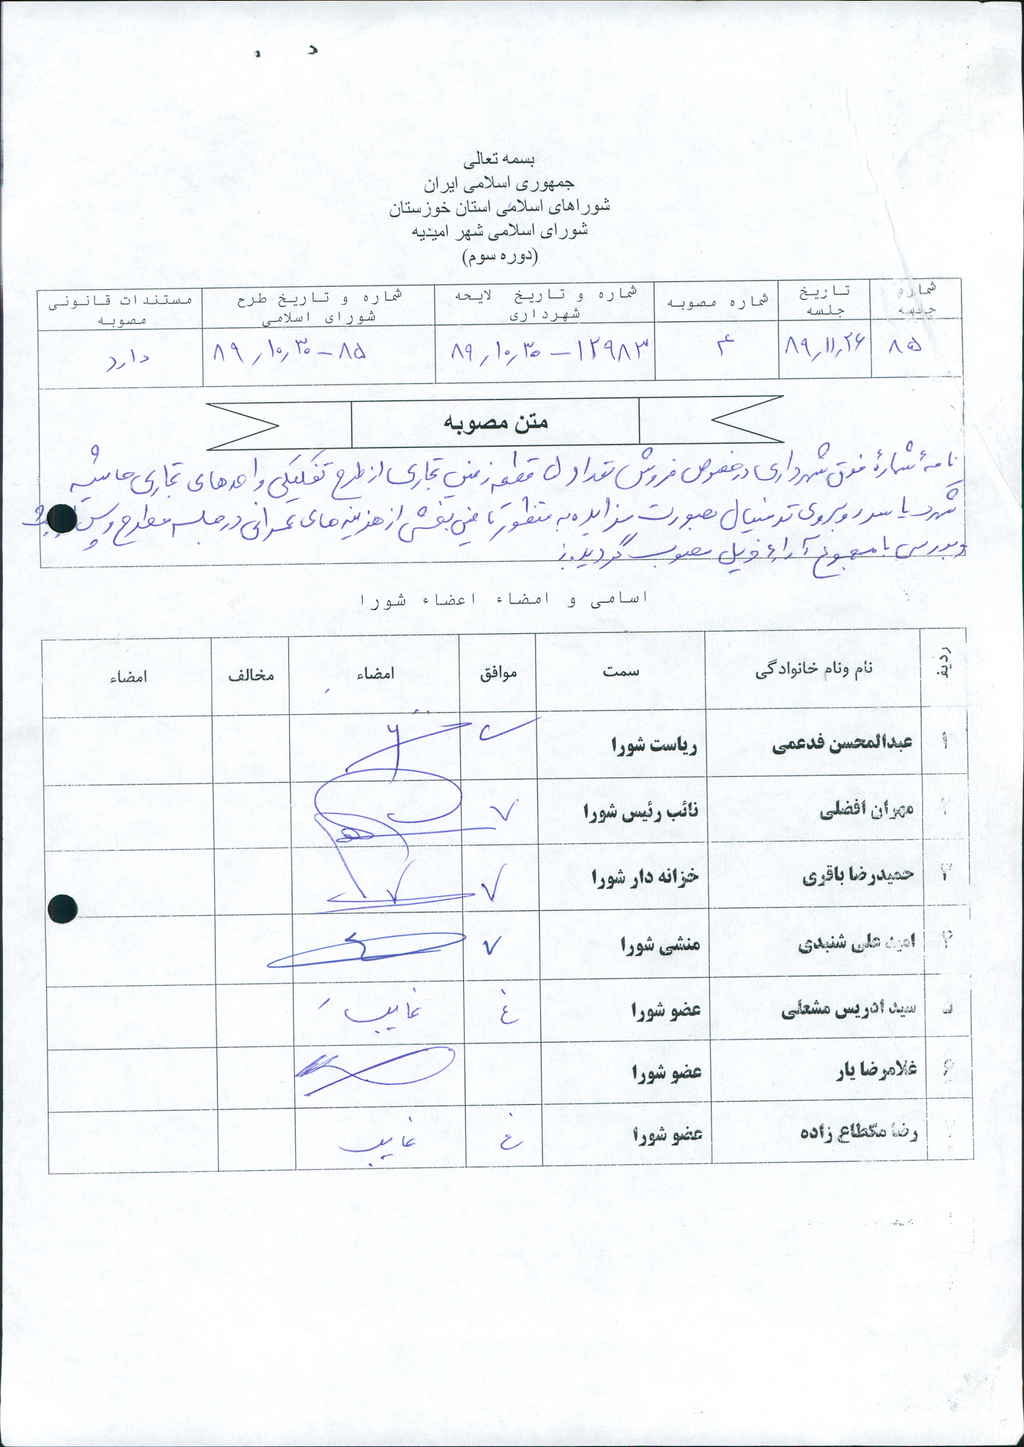 بسمه تعالی
جمهوری اسلامی ایران
شوراهای اسلامی استان خوزستان
شورای اسلامی شهر امیدیه
(دوره سوم)
شماره جلسه | تاریخ جلسه | شماره مصوبه | شماره و تاریخ لایحه شهرداری | شماره و تاریخ طرح شورای اسلامی | مستندات قانونی مصوبه
۸۵ | ۸۹/۱۱/۲۶ | ۴ | ۱۲۹۸۳ - ۸۹/۱۰/۳۰ | ۸۵ - ۸۹/۱۰/۳۰ | دارد
متن مصوبه
نامهٔ شمارهٔ فوق شهرداری درخصوص فروش تعداد قطعه زمین تجاری از طرح تفکیکی واحدهای تجاری حاشیه
روبروی بصورت مزایده به منظور تامین بخشی از هزینه های عمرانی در جلسه مطرح و پس از
بررسی با مجموع آراء ذیل مصوب گردید.
اسامی و امضاء اعضاء شورا
ردیف | نام ونام خانوادگی | سمت | موافق | امضاء | مخالف | امضاء
۱ | عبدالمحسن فدعمی | ریاست شورا
۲ | مهران افضلی | نائب رئیس شورا
۳ | حمیدرضا باقری | خزانه دار شورا
۴ | امید علی شنبدی | منشی شورا
۵ | سید ادریس مشعلی | عضو شورا | غ | غایب
۶ | غلامرضا یار | عضو شورا
۷ | رضا مکطاع زاده | عضو شورا | غ | غایب